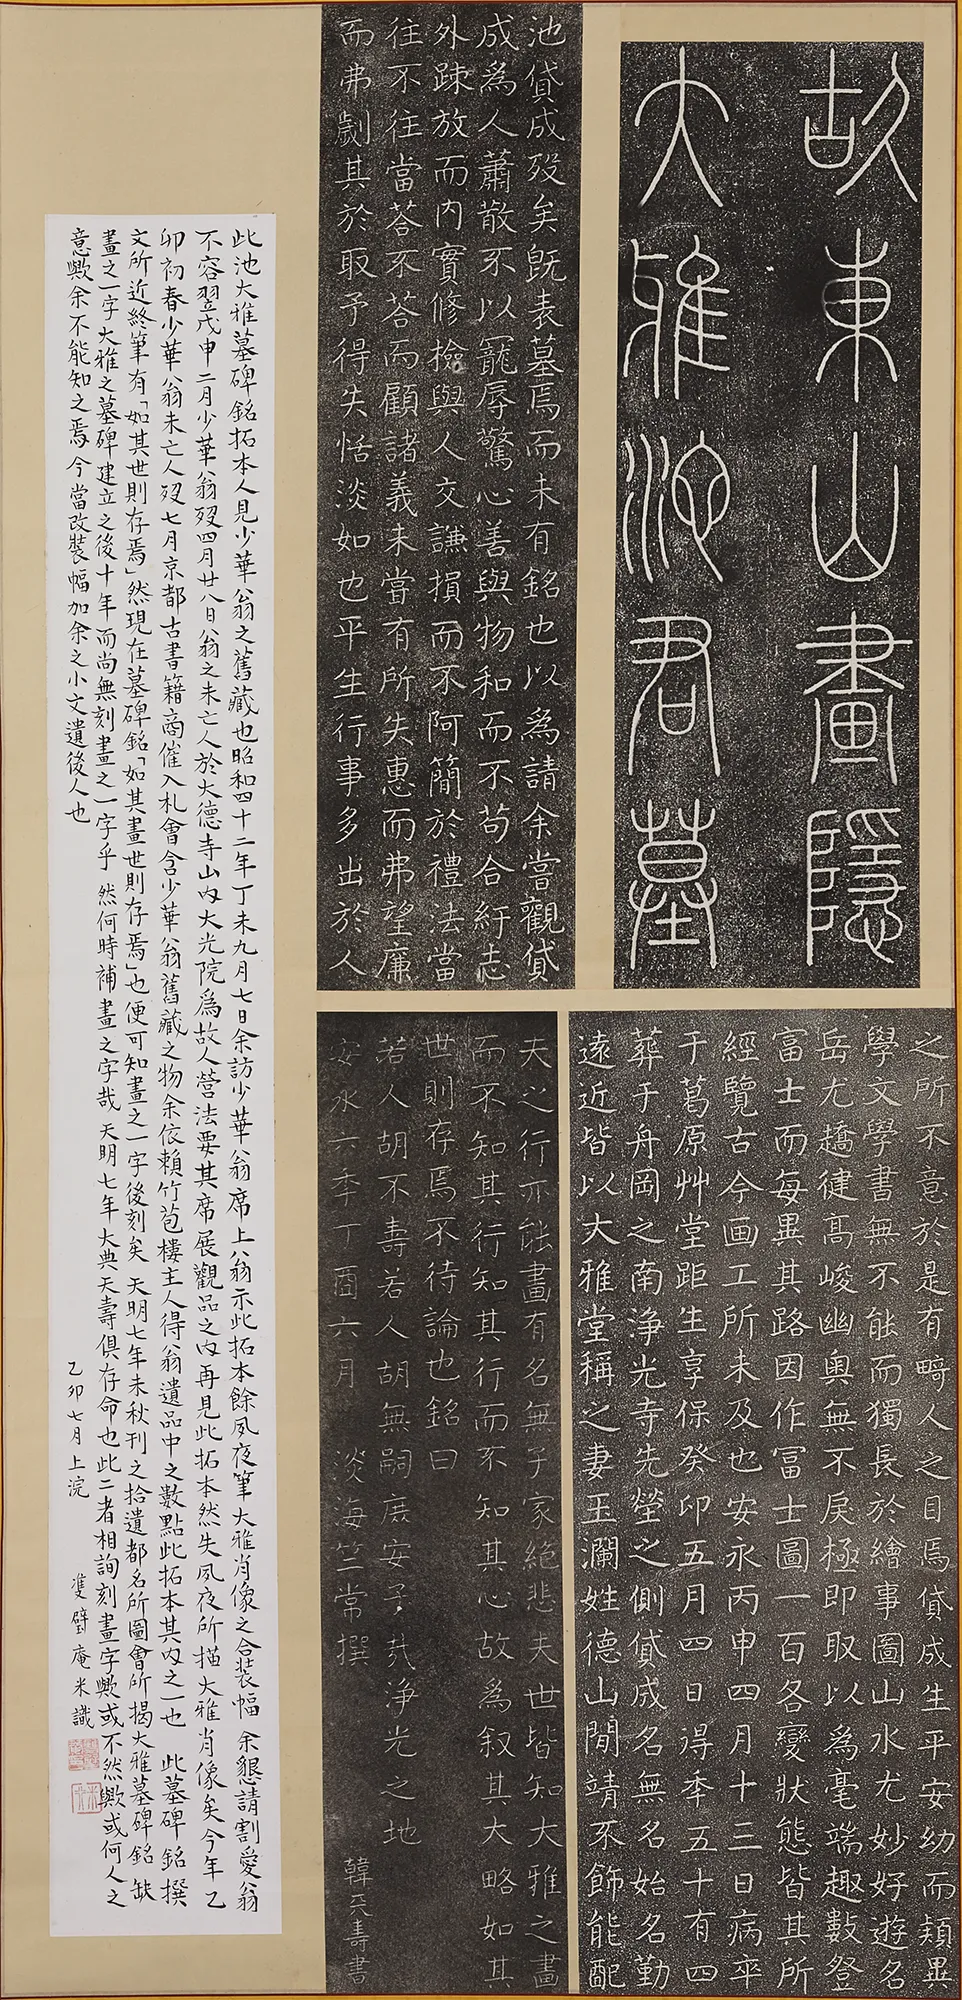 故東山畫隱
大雅池君墓
池貸成歿矣既表墓焉而未有銘也以為請余嘗觀貸
成為人蕭散不以寵辱驚心善與物和而不苟合紆志
外疎放而內實修撿與人交謙損而不阿簡於禮法當
往不往當荅不荅而顧諸義未嘗有所失惠而弗望廉
而弗劌其於取予得失恬淡如也平生行事多出於人
之所不意於是有畸人之目焉貸成生平安幼而穎異
學文學書無不能而獨長於繪事圖山水尤妙好遊名
岳尤趫健高峻幽奧無不戾極即取以為毫端趣數登
富士而每異其路因作冨士圖一百各變狀態皆其所
經覽古今画工所未及也安永丙申四月十三日病卒
于葛原艸堂距生享保癸卯五月四日得季五十有四
葬于舟岡之南浄光寺先塋之側貸成名無名始名勤
遠近皆以大雅堂稱之妻玉瀾姓德山閒靖不飾能配
夫之行亦能畫有名無子家絕悲夫世皆知大雅之畫
而不知其行知其行而不知其心故為叙其大略如其
世則存焉不待論也銘曰
若人胡不壽若人胡無嗣庶安子㢤浄光之地
安永六季丁酉六月 淡海竺常撰 韓天壽書
此池大雅墓碑銘拓本人見少華翁之舊藏也昭和四十二年丁未九月七日余訪少華翁席上翁示此拓本餘夙夜筆大雅肖像之合裝幅 余懇請割愛翁
不容翌戊申二月少華翁歿四月廿八日翁之未亡人於大德寺山內大光院爲故人營法要其席展觀品之內再見此拓本然失夙夜所描大雅肖像矣今年乙
卯初春少華翁未亡人歿七月京都古書籍商催入札會含少華翁舊藏之物余依賴竹苞樓主人得翁遺品中之數點此拓本其內之一也 此墓碑銘撰
文所近終筆有「如其世則存焉」然現在墓碑銘「如其畫世則存焉」也便可知畫之一字後刻矣 天明七年未秋刊之拾遺都名所圖會所揭大雅墓碑銘缺
畫之一字大雅之墓碑建立之後十年而尚無刻畫之一字乎 然何時補畫之字哉 天明七年大典天壽俱存命也此二者相詢刻畫字歟或不然歟或何人之
意歟余不能知之焉 今當改裝幅加余之小文遺後人也
乙卯七月上浣 隻璧庵米識